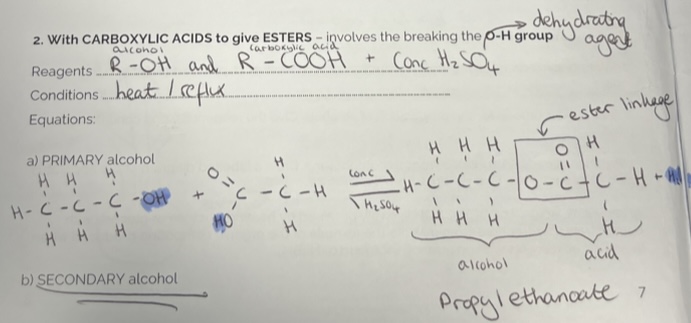 dehydrating agent
2. With CARBOXYLIC ACIDS to give ESTERS – involves the breaking the O-H group
alcohol carboxylic acid
Reagents R-OH and R-COOH + Conc H₂SO₄
Conditions heat / reflux
Equations:
ester linkage
a) PRIMARY alcohol
H H H H H H H O H
H-C-C-C-OH + O C-C-H conc H-C-C-C-O-C-C-H +
HO H₂SO₄
H H H H H H H H
alcohol acid
b) SECONDARY alcohol
Propylethanoate
7